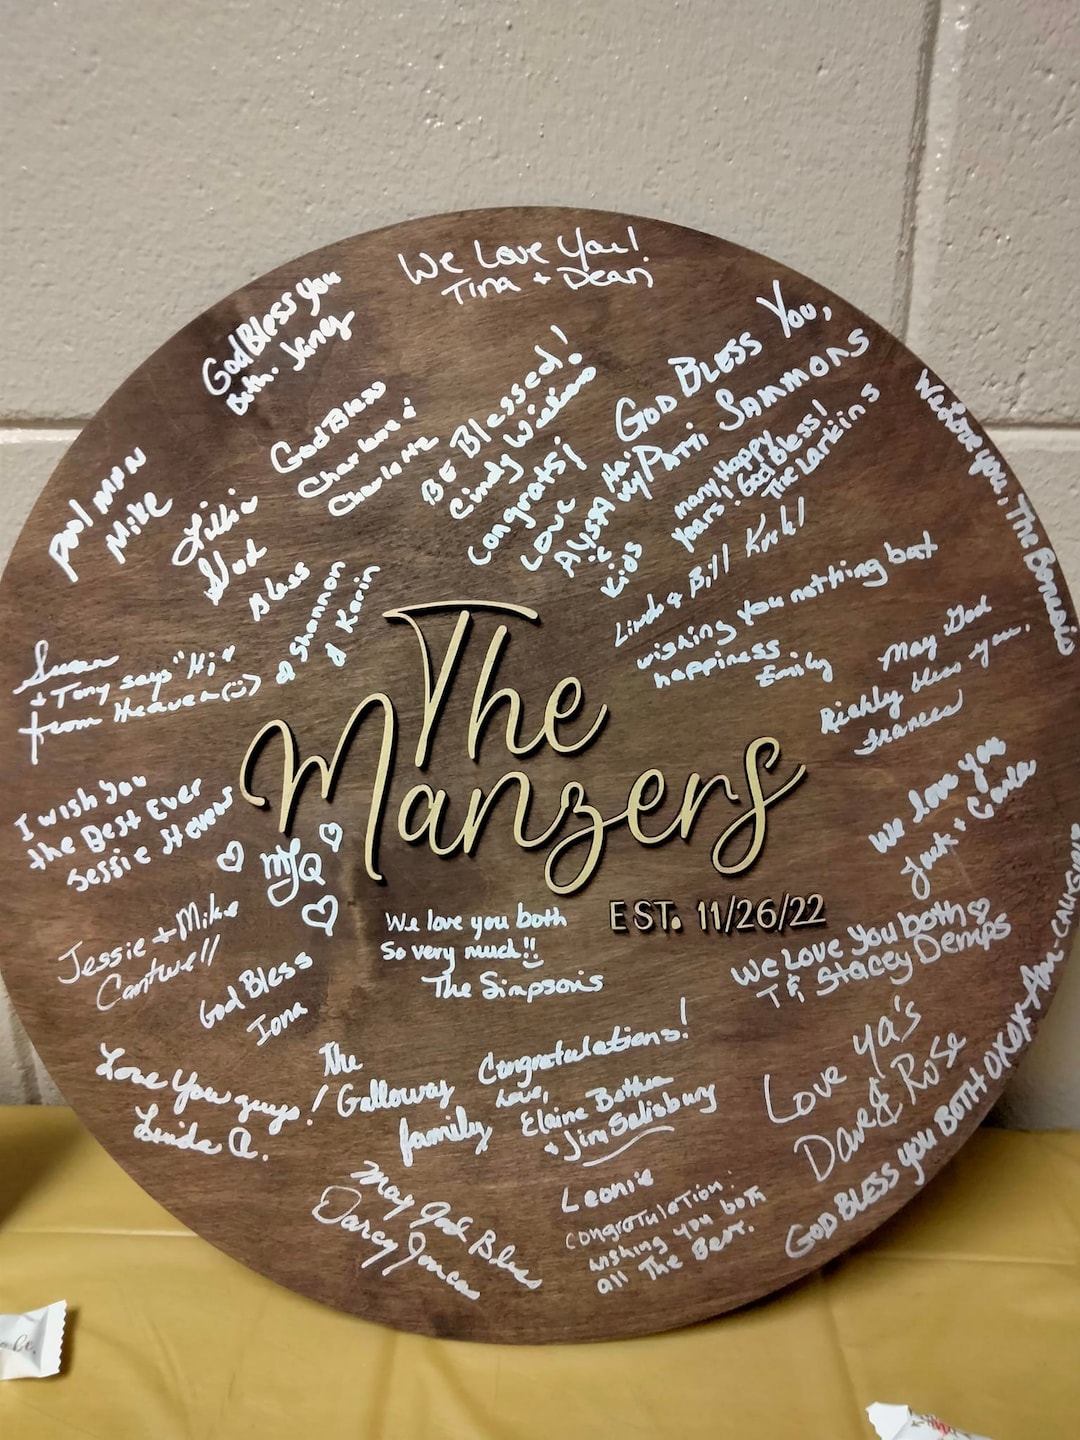 We Love You!
Tina + Dean
God Bless you
Janey
God Bless
Charlene &
Charlotte
BE Blessed!
Cindy
Congrats!
Love
Alyssa
Kids
GOD BLESS YOU,
Patti SAMMONS
many Happy
years! God Bless!
The Larkins
Linda & Bill
We Love you, The
Mike
Lillie
God
Bless
Shannon
& Karin
wishing you nothing but
happiness
Emily
May God
Richly bless you,
Frances
Susan
+ Tony says "Hi"
from Heaven
The
Manzers
EST. 11/26/22
I wish you
the Best Ever
Jessie
MJQ
We love you
Jack +
Jessie + Mike
Cantwell
We love you both
So very much!!
The Simpson's
We Love You both
T & Stacey Demps
God Bless
Iona
Love You guys!
Linda A.
The
Galloway
family
Congratulations!
Love,
Elaine
+ Jim Salisbury
Love ya's
Dave & Rose
GOD BLESS you BOTH
May God Bless
Darcy
Leonie
Congratulation.
wishing you both
all The Best.